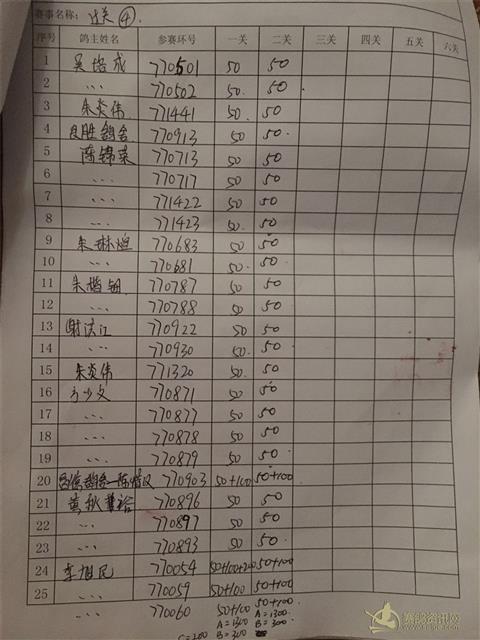 赛事名称：过关④.
序号 鸽主姓名 参赛环号 一关 二关 三关 四关 五关 六关
1 770501 50 50
2 〃 770502 50. 50.
3 朱炎伟 771441 50 50
4 良胜鸽舍 770913 50 50.
5 陈锦荣 770713 50 50
6 〃 770717 50 50
7 〃 771422 50 50
8 〃 771423 50. 50
9 朱琳煊 770683 50 50
10 〃 770681 50. 50.
11 770787 50 50
12 〃 770788 50 50
13 谢汉江 770922 50 50
14 〃 770930 50. 50.
15 朱炎伟 771320 50. 50
16 方少文 770871 50 50
17 〃 770877 50 50
18 〃 770878 50 50
19 〃 770879 50 50.
20 770903 50+100 50+100
21 770896 50 50
22 〃 770897 50 50
23 〃 770893 50 50.
24 李旭民 770054 50+100+200 50+100
25 〃 770059 50+100 50+100
〃 770060 50+100 50+100.
A=1300 A=1300
C=200 B=300 B=300.
赛鸽资讯网